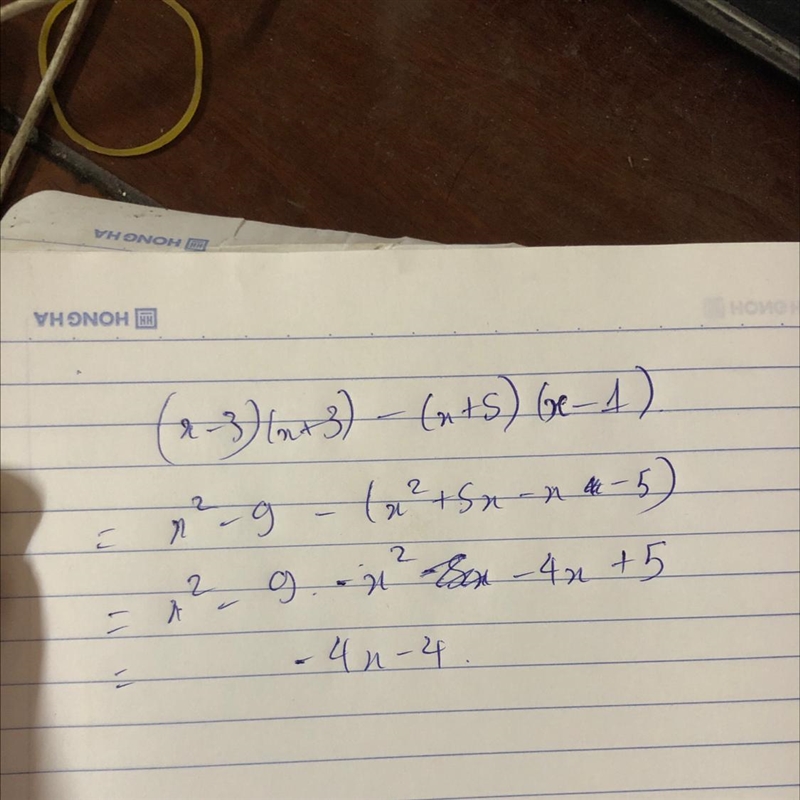 HONG HA
HONG HA
HONG HA
(x-3)(x+3) - (x+5)(x-1)
= x² - 9 - (x² + 5x - x - 5)
= x² - 9 - x² - 4x + 5
= - 4x - 4.